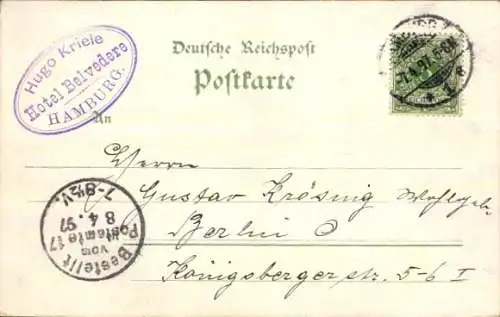 Hugo Kriele
Hotel Belvedere
HAMBURG.
Deutsche Reichspost
Postkarte
An
Herrn
Gustav Krösnig Wohlgeb.
Berlin O
Königsberger str. 5-6 I
7.4.97
* 1 *
Bestellt
vom
Postamte 17
8 4. 97
7-8½V.